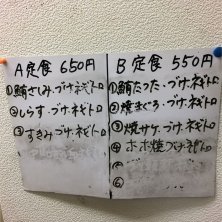 A定食 650円
①鮪さしみ・づけ・ネギトロ
②しらす・づけ・ネギトロ
③すきみ・づけ・ネギトロ
B定食 550円
①鮪たつた・づけ・ネギトロ
②焼まぐろ・づけ・ネギトロ
③焼サケ・づけ・ネギトロ
④ホホ焼・づけ・ネギトロ
⑤
⑥